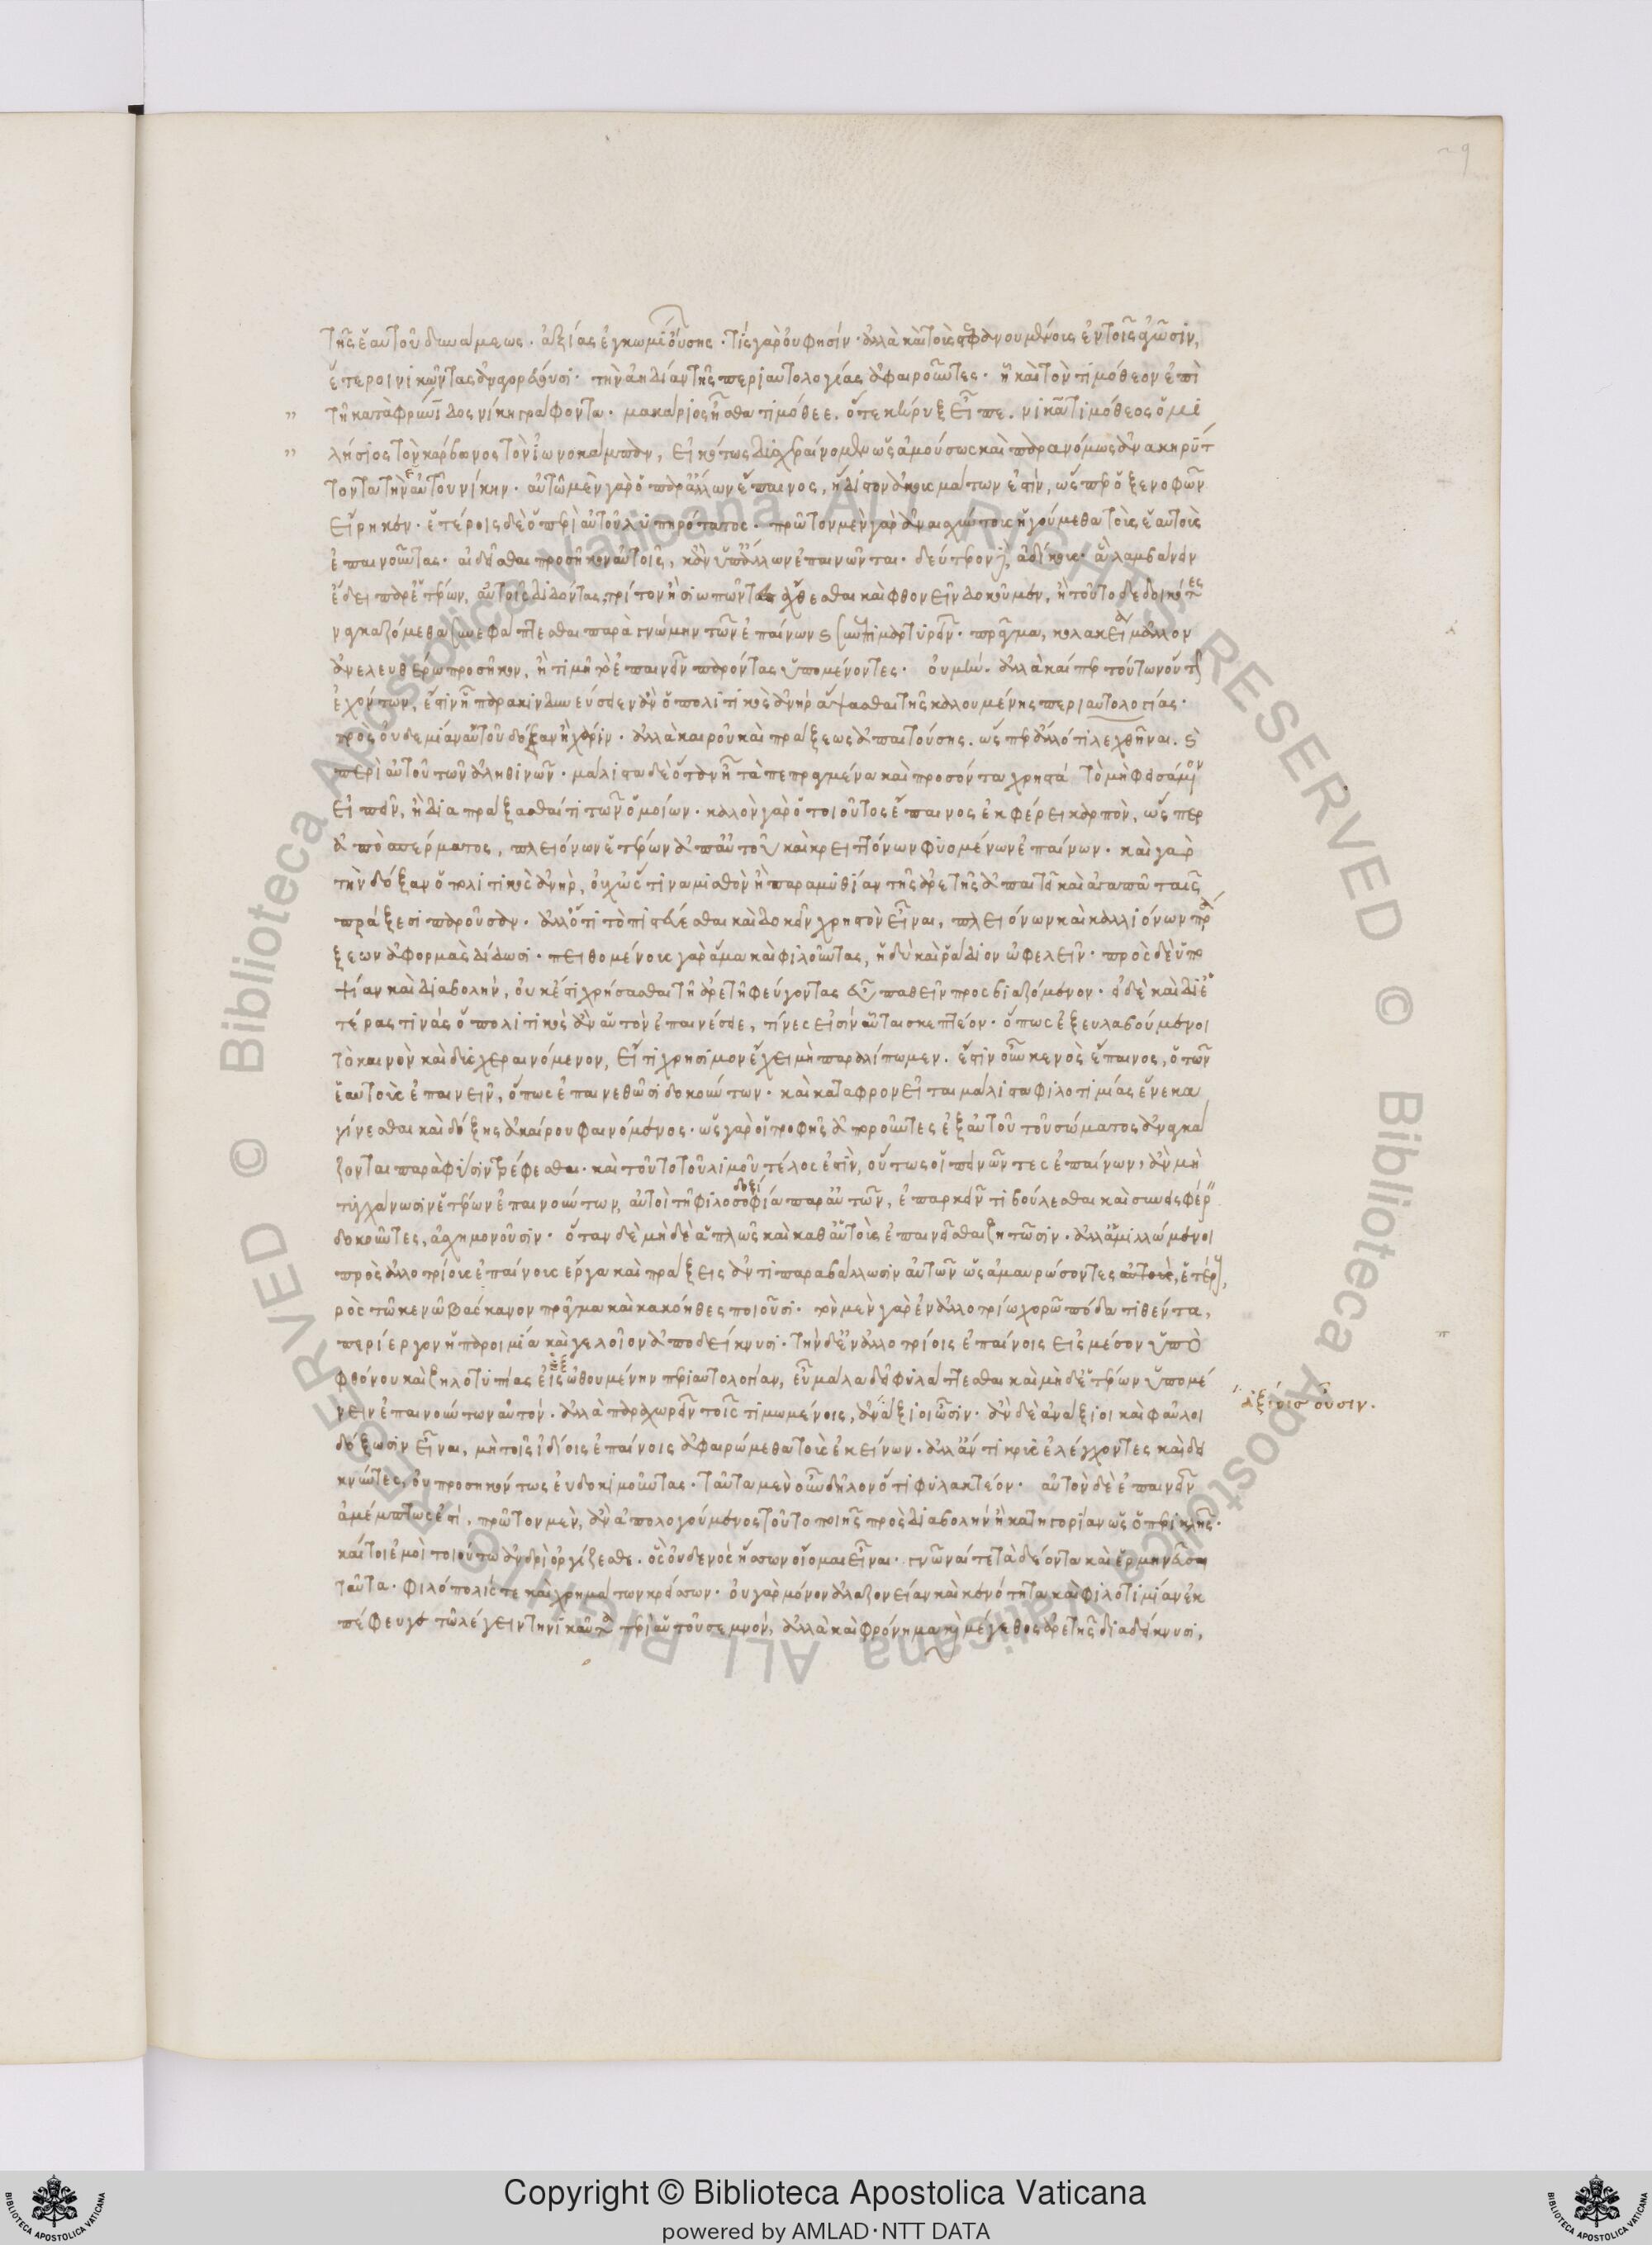 9
τῆς ἑαυτοῦ δυνάμεως. ἀξίας ἐγκωμίου οὔσης. τίς γὰρ οὔ φησίν. ἀλλὰ καὶ τοὺς στεφανουμένους ἐν τοῖς ἀγῶσιν,
ἕτεροι νικῶντας ἀναγορεύουσι. τὴν ἀηδίαν τῆς περιαυτολογίας ἀφαιροῦντες. ἧ καὶ τὸν τιμόθεον ἐπὶ
τῆ κατὰ φρύνιδος νίκη γράφοντα. μακάριος ἦσθα τιμόθεε. ὅτε κῆρυξ εἶπε. νικᾶ τιμόθεος ὁ μι
λήσιος τὸν κάρβωνος τὸν ἰωνοκάμπταν, εἰκότως δυσχεραίνομεν ὡς ἀμούσως καὶ παρανόμως ἀνακηρύτ
τοντα τὴν ἑαυτοῦ νίκην. αὐτῶ μὲν γὰρ ὁ παρ' ἄλλων ἔπαινος, ἥδιστον ἀκουσμάτων ἐστίν, ὥσπερ ὁ ξενοφῶν
εἴρηκεν. ἑτέροις δὲ ὁ περὶ αὑτοῦ λυπηρότατος. πρῶτον μὲν γὰρ ἀναισχύντους ἡγούμεθα τοὺς ἑαυτοὺς
ἐπαινοῦντας. αἰδεῖσθαι προσῆκον αὐτοῖς, κἂν ὑπ' ἄλλων ἐπαινῶνται. δεύτερον δὲ, ἀδίκους. ἃ λαμβάνειν
ἔδει παρ' ἑτέρων, αὑτοῖς διδόντας, τρίτον ἢ σιωπῶντες ἄχθεσθαι καὶ φθονεῖν δοκοῦμεν, ἢ τοῦτο δεδοικότες
ἀναγκαζόμεθα συνεφάπτεσθαι παρὰ γνώμην τῶν ἐπαίνων καὶ συνεπιμαρτυρεῖν. πρᾶγμα, κολακεία μᾶλλον
ἀνελευθέρω προσῆκον, ἢ τιμῆ τὸ ἐπαινεῖν παρόντας ὑπομένοντες. οὐ μὴν. ἀλλὰ καίπερ τούτων οὕτως
ἐχόντων, ἔστιν ἧ παρακινδυνεύσειεν ἂν ὁ πολιτικὸς ἀνὴρ ἅψασθαι τῆς καλουμένης περιαυτολογίας.
πρὸς οὐδεμίαν αὑτοῦ δόξαν ἢ χάριν. ἀλλὰ καιροῦ καὶ πράξεως ἀπαιτούσης. ὥσπερ ἄλλό τι λεχθῆναι. καὶ
περὶ αὑτοῦ τῶν ἀληθινῶν. μάλιστα δὲ ὅταν ἦ τὰ πεπραγμένα καὶ προσόντα χρηστά τὸ μὴ φεισάμενον
εἰπεῖν, ἢ διαπράξασθαί τι τῶν ὁμοίων. καλὸν γὰρ ὁ τοιοῦτος ἔπαινος ἐκφέρει καρπὸν, ὥσπερ
ἀπὸ σπέρματος, πλειόνων ἑτέρων ἀπ' αὐτοῦ καὶ κρειττόνων φυομένων ἐπαίνων. καὶ γὰρ
τὴν δόξαν ὁ πολιτικὸς ἀνὴρ, οὐχ ὥς τινα μισθὸν ἢ παραμυθίαν τῆς ἀρετῆς ἀπαιτεῖ καὶ ἀγαπᾶ ταῖς
πράξεσι παροῦσαν. ἀλλ' ὅτι τὸ πιστεύεσθαι καὶ δοκεῖν χρηστὸν εἶναι, πλειόνων καὶ καλλιόνων πρά
ξεων ἀφορμὰς δίδωσι. πειθομένους γὰρ ἅμα καὶ φιλοῦντας, ἡδὺ καὶ ῥάδιον ὠφελεῖν. πρὸς δὲ ὑπο
ψίαν καὶ διαβολὴν, οὐκ ἔστι χρήσασθαι τῆ ἀρετῆ φεύγοντας εὖ παθεῖν προσβιαζόμενον. εἰ δὲ καὶ δι' ἑ
τέρας τινὰς ὁ πολιτικὸς ἂν αὑτὸν ἐπαινέσειε, τίνες εἰσὶν αὗται σκεπτέον. ὅπως ἐξευλαβούμενοι
τὸ καινὸν καὶ δυσχεραινόμενον, εἴ τι χρήσιμον ἔχει μὴ παραλίπωμεν. ἔστιν οὖν κενὸς ἔπαινος, ὁ τῶν
ἑαυτοὺς ἐπαινεῖν, ὅπως ἐπαινεθῶσι δοκούντων. καὶ καταφρονεῖται μάλιστα φιλοτιμίας ἕνεκα
γίνεσθαι καὶ δόξης ἀκαίρου φαινόμενος. ὡς γὰρ οἱ τροφῆς ἀποροῦντες ἐξ αὑτοῦ τοῦ σώματος ἀναγκά
ζονται παρὰ φύσιν τρέφεσθαι. καὶ τοῦτο τοῦ λιμοῦ τέλος ἐστὶν, οὕτως οἱ πεινῶντες ἐπαίνων, ἂν μὴ
τυγχάνωσιν ἑτέρων ἐπαινούντων, αὐτοὶ τῆ φιλοσοφία δοξί παρ' αὑτῶν, ἐπαρκεῖν τι βούλεσθαι καὶ συνεισφέρειν
δοκοῦντες, ἀσχημονοῦσιν. ὅταν δὲ μὴ δὲ ἁπλῶς καὶ καθ' αὑτοὺς ἐπαινεῖσθαι ζητῶσιν. ἀλλ' ἁμιλλώμενοι
πρὸς ἀλλοτρίους ἐπαίνους ἔργα καὶ πράξεις ἀντιπαραβάλλωσιν αὑτῶν ὡς ἀμαυρώσοντες αὐτοὺς, ἑτέρους,
πρὸς τῶ κενῶ βάσκανον πρᾶγμα καὶ κακόηθες ποιοῦσι. τὸν μὲν γὰρ ἐν ἀλλοτρίω χορῶ πόδα τιθέντα,
περίεργον ἡ παροιμία καὶ γελοῖον ἀποδείκνυσι. τὴν δὲ ἐν ἀλλοτρίοις ἐπαίνοις εἰς μέσον ὑπὸ
φθόνου καὶ ζηλοτυπίας εἰς ἐξ ὠθουμένην περιαυτολογίαν, εὖ μάλα δεῖ φυλάττεσθαι καὶ μὴ δὲ ἑτέρων ὑπομέ
νειν ἐπαινούντων αὑτόν. ἀλλὰ παραχωρεῖν τοῖς τιμωμένοις, ἂν ἄξιοι ὦσιν. ἂν δὲ ἀνάξιοι καὶ φαῦλοι
ἀξίοις οὖσιν.
δόξωσιν εἶναι, μὴ τοῖς ἰδίοις ἐπαίνοις ἀφαιρώμεθα τοὺς ἐκείνων. ἀλλ' ἄντικρυς ἐλέγχοντες καὶ δει
κνύντες, οὐ προσηκόντως εὐδοκιμοῦντας. ταῦτα μὲν οὖν δῆλον ὅτι φυλακτέον. αὑτὸν δὲ ἐπαινεῖν
ἀμέμπτως ἐστί, πρῶτον μὲν, ἂν ἀπολογούμενος τοῦτο ποιῆς πρὸς διαβολὴν ἢ κατηγορίαν ὡς ὁ περικλῆς.
καίτοι ἐμοὶ τοιούτω ἀνδρὶ ὀργίζεσθε. ὃς οὐδενὸς ἥσσων οἴομαι εἶναι. γνῶναί τε τὰ δέοντα καὶ ἑρμηνεῦσαι
ταῦτα. φιλόπολίς τε καὶ χρημάτων κρείσσων. οὐ γὰρ μόνον ἀλαζονείαν καὶ κενότητα καὶ φιλοτιμίαν ἐκ
πέφευγε τῶ λέγειν τηνικαῦτα περὶ αὑτοῦ σεμνόν, ἀλλὰ καὶ φρόνημα καὶ μέγεθος ἀρετῆς διαδείκνυσι,
Copyright © Biblioteca Apostolica Vaticana
powered by AMLAD·NTT DATA